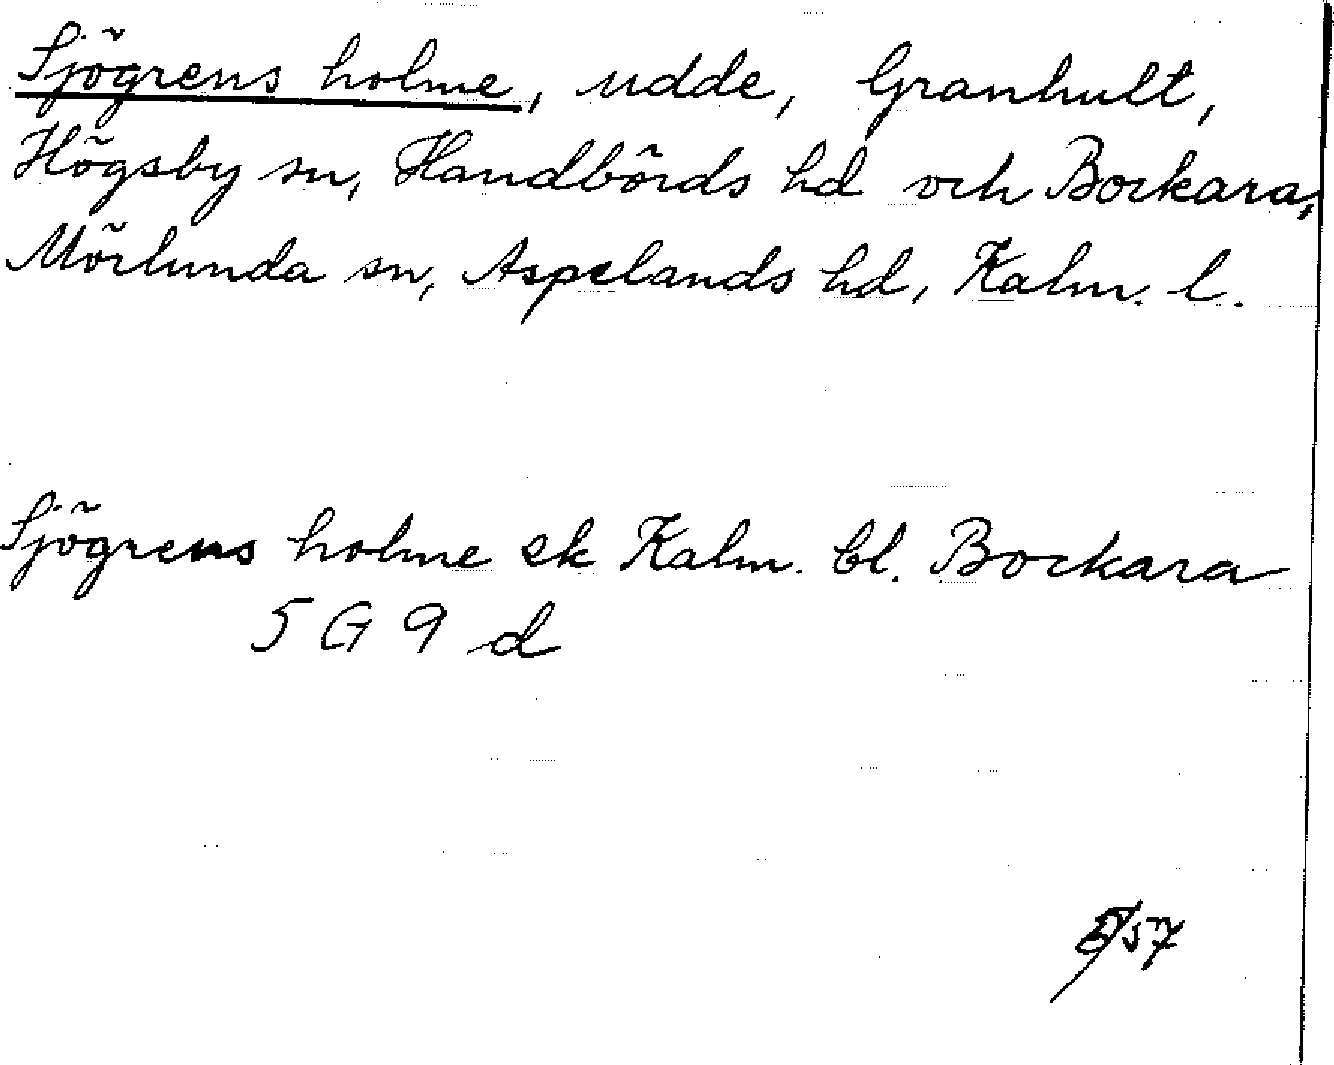 Sjögrens holme, udde, Granhult,
Högsby sn, Handbörds hd och Bockara,
Mörlunda sn, Aspelands hd, Kalm. l.
Sjögrens holme ek Kalm. bl. Bockara
5 G 9 d
/57